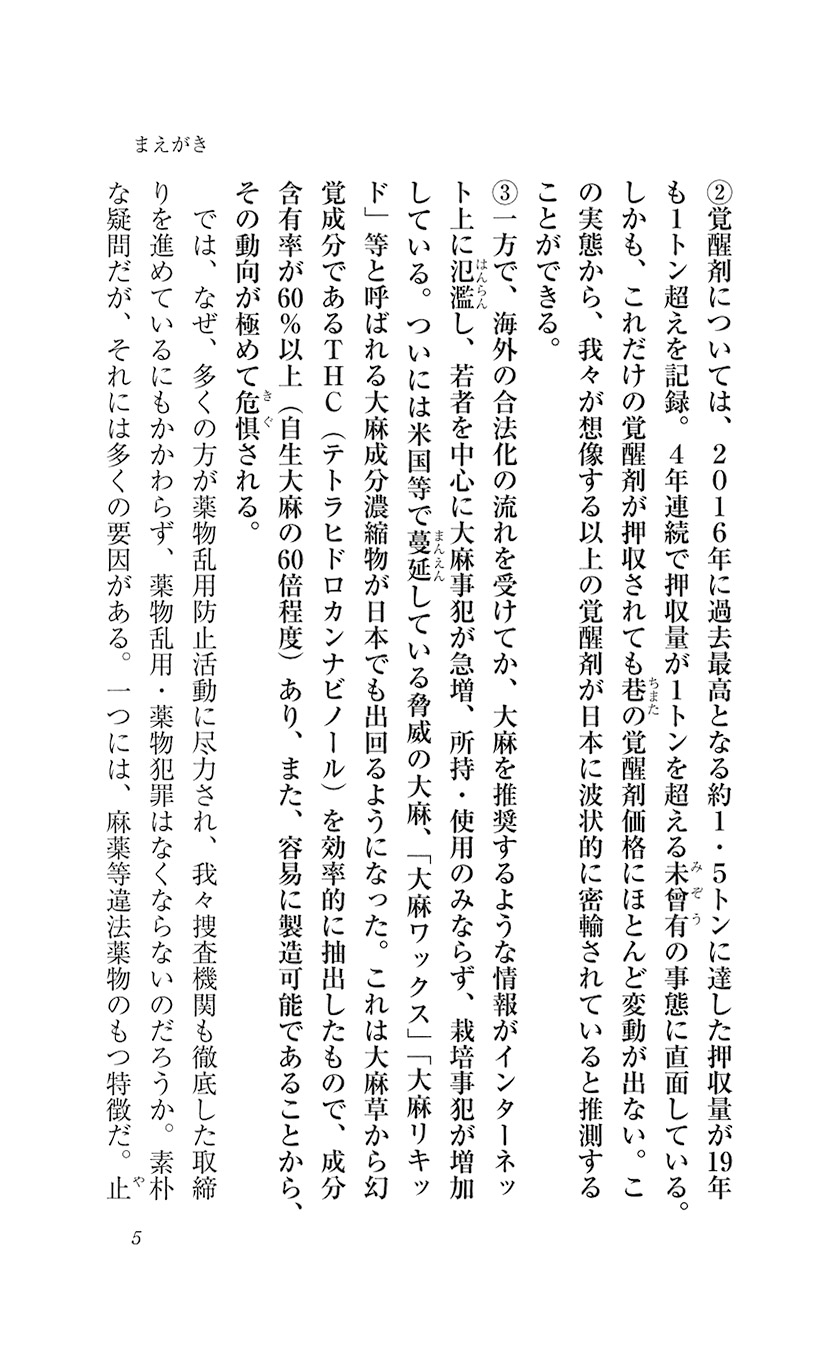 まえがき
②覚醒剤については、2016年に過去最高となる約1・5トンに達した押収量が19年
も1トン超えを記録。4年連続で押収量が1トンを超える未曾有の事態に直面している。
しかも、これだけの覚醒剤が押収されても巷の覚醒剤価格にほとんど変動が出ない。こ
の実態から、我々が想像する以上の覚醒剤が日本に波状的に密輸されていると推測する
ことができる。
③一方で、海外の合法化の流れを受けてか、大麻を推奨するような情報がインターネッ
ト上に氾濫し、若者を中心に大麻事犯が急増、所持・使用のみならず、栽培事犯が増加
している。ついには米国等で蔓延している脅威の大麻、「大麻ワックス」「大麻リキッ
ド」等と呼ばれる大麻成分濃縮物が日本でも出回るようになった。これは大麻草から幻
覚成分であるTHC（テトラヒドロカンナビノール）を効率的に抽出したもので、成分
含有率が60％以上（自生大麻の60倍程度）あり、また、容易に製造可能であることから、
その動向が極めて危惧される。
では、なぜ、多くの方が薬物乱用防止活動に尽力され、我々捜査機関も徹底した取締
りを進めているにもかかわらず、薬物乱用・薬物犯罪はなくならないのだろうか。素朴
な疑問だが、それには多くの要因がある。一つには、麻薬等違法薬物のもつ特徴だ。止
5